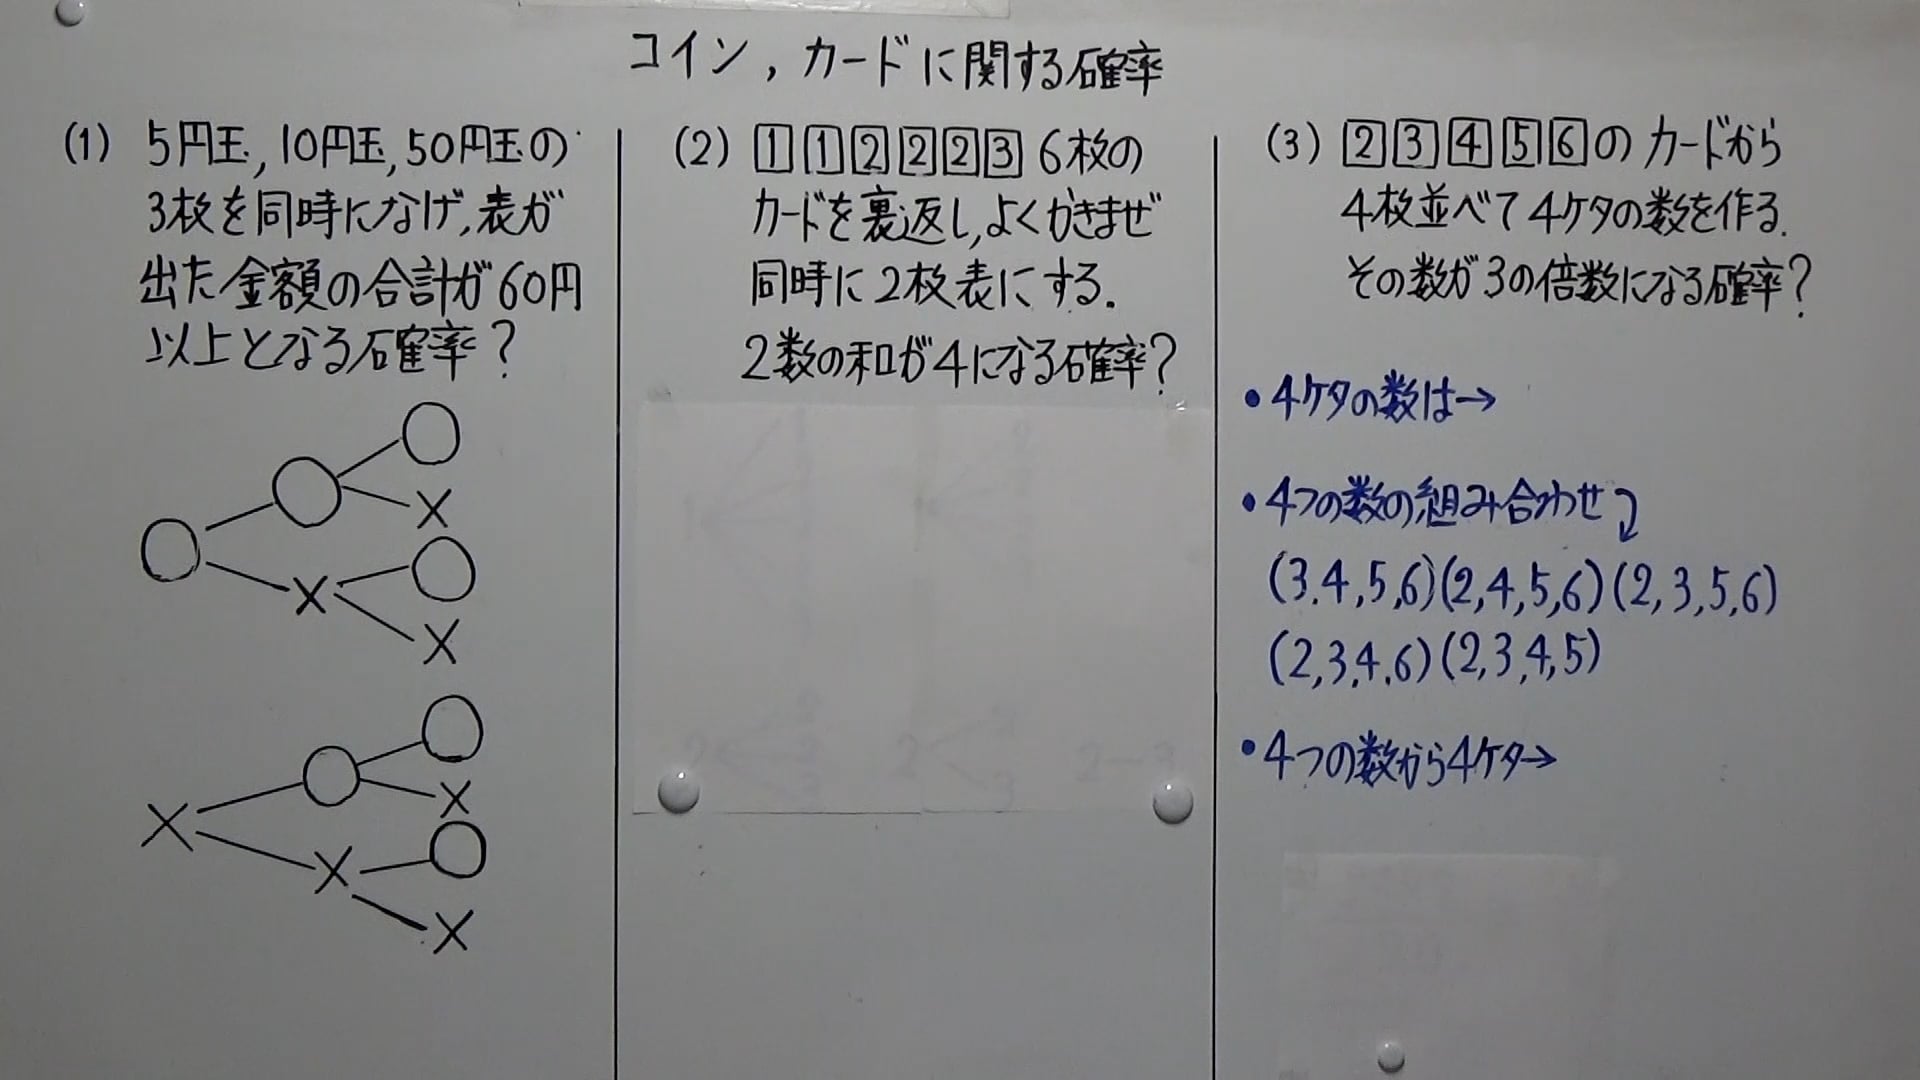 コイン，カードに関する確率
(1) 5円玉,10円玉,50円玉の
3枚を同時になげ,表が
出た金額の合計が60円
以上となる確率？
○
○
×
○
○
×
×
○
○
×
×
○
×
×
(2) 1 1 2 2 2 3 6枚の
カードを裏返し,よくかきまぜ
同時に2枚表にする.
2数の和が4になる確率？
(3) 2 3 4 5 6 の カードから
4枚並べて4ケタの数を作る.
その数が3の倍数になる確率？
•4ケタの数は→
•4つの数の組み合わせ
(3.4,5,6)(2,4,5,6)(2,3,5,6)
(2,3.4.6)(2,3,4,5)
•4つの数から4ケタ→